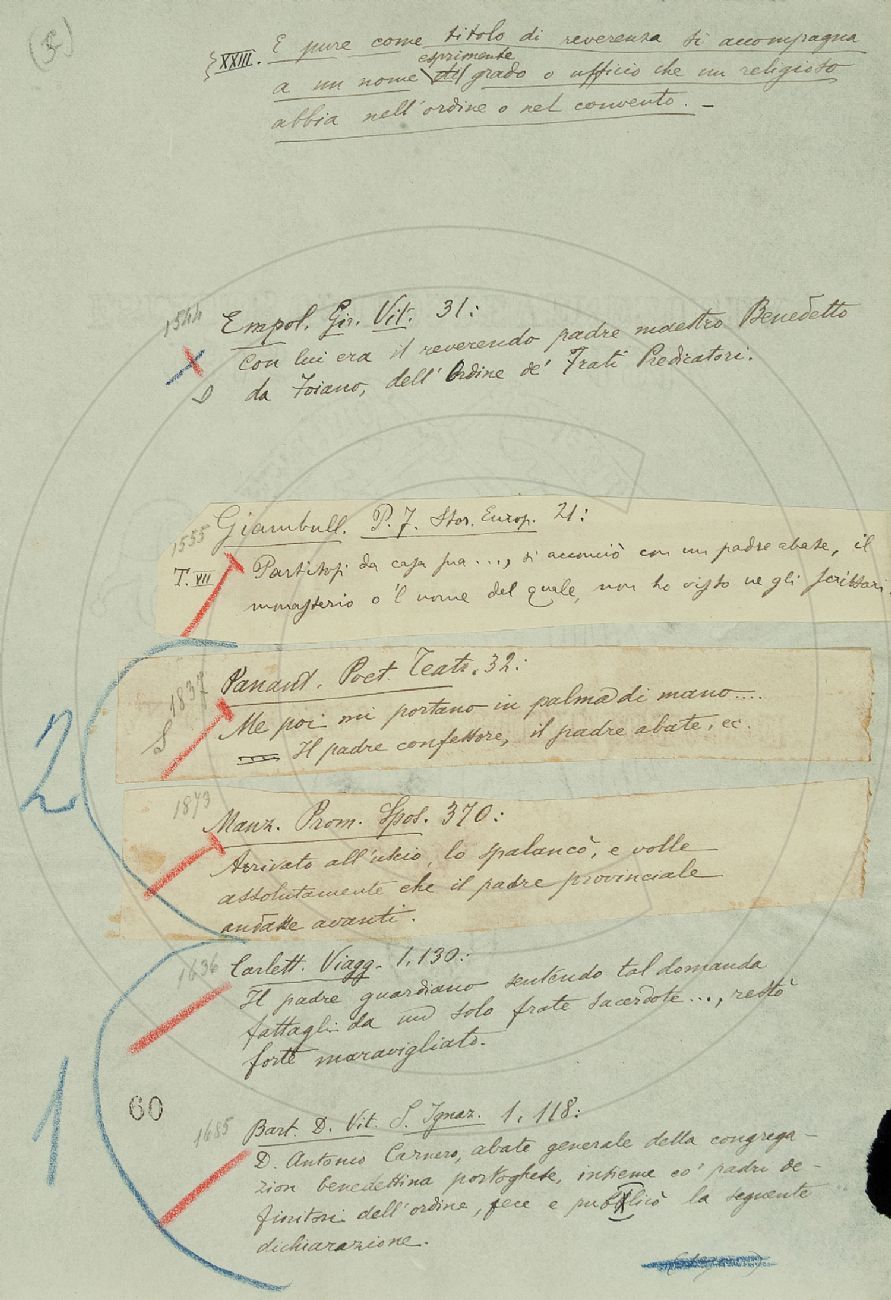 (5)
XXIII. E pure come titolo di reverenza si accompagna
esprimente
a un nome grado o ufficio che un religioso
abbia nell'ordine o nel convento. –
1544
Empol. Gir. Vit. 31:
Con lui era il reverendo padre maestro Benedetto
da Foiano, dell'Ordine de' Frati Predicatori.
1555
Giambull. P. F. Stor. Europ. 21:
T. VII
Partitosi da casa sua..., si acconciò con un padre abate, il
monasterio o 'l nome del quale, non ho visto ne gli scrittori.
1837
Panant. Poet Teatr. 32:
S
Me poi mi portano in palma di mano....
Il padre confessore, il padre abate, ec.
2
1873
Manz. Prom. Spos. 370:
Arrivato all'uscio, lo spalancò, e volle
assolutamente che il padre provinciale
andasse avanti.
1636
Carlett. Viagg. 1, 130:
Il padre guardiano sentendo tal domanda
fattagli da un solo frate sacerdote..., restò
forte maravigliato.
1
60
1685
Bart. D. Vit. S. Ignaz. 1, 118:
D. Antonio Carnero, abate generale della congrega-
zion benedettina portoghese, insieme co' padri de-
finitori dell'ordine, fece e pubblicò la seguente
dichiarazione.